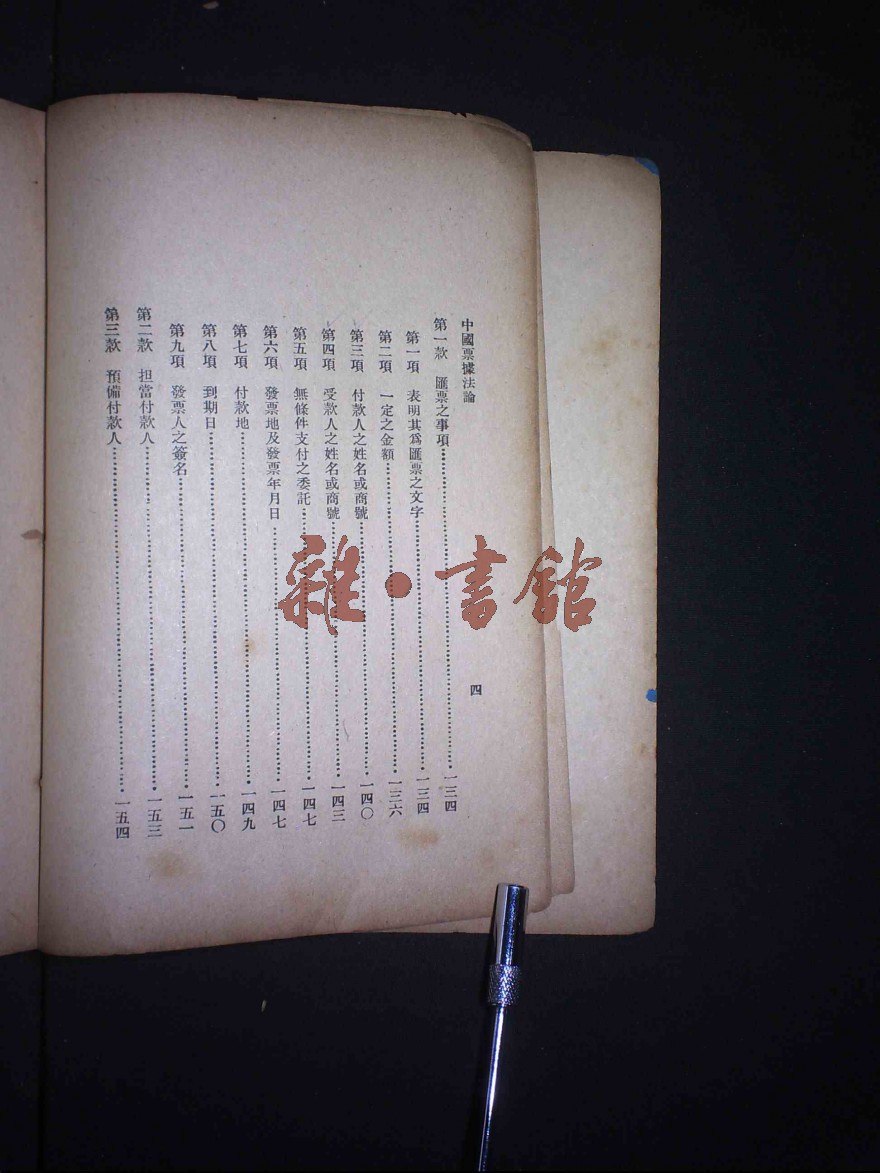 中國票據法論
四
第一款 匯票之事項……一三四
第一項 表明其爲匯票之文字……一三四
第二項 一定之金額……一三六
第三項 付款人之姓名或商號……一四〇
第四項 受款人之姓名或商號……一四三
第五項 無條件支付之委託……一四七
第六項 發票地及發票年月日……一四七
第七項 付款地……一四九
第八項 到期日……一五〇
第九項 發票人之簽名……一五一
第二款 担當付款人……一五三
第三款 預備付款人……一五四
雜·書館